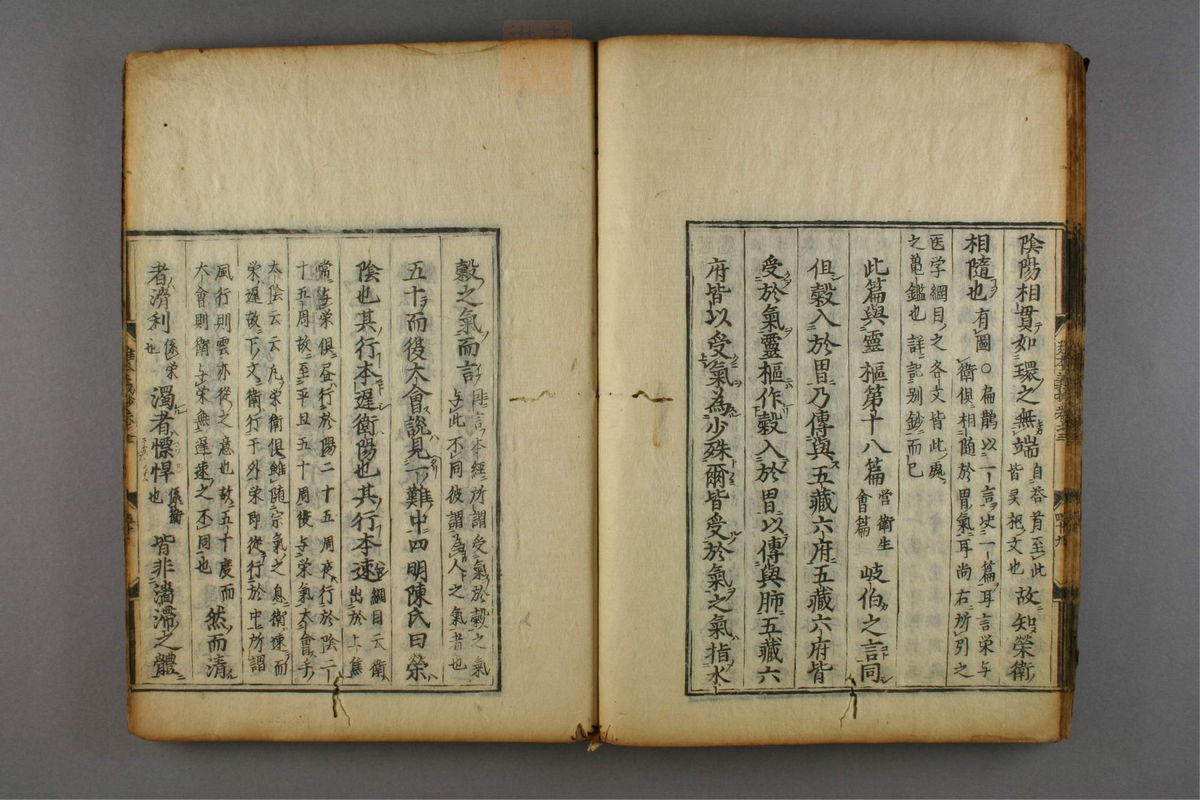 陰陽相貫如環之無端 自荅首至此 皆灵枢文也 故知榮衛
相隨也 有圖○扁鵲以一言安一篇耳言榮与 衛俱相随於胃氣耳尚右所引之
医学綱目之各文皆此処
之亀鑑也 詳記别鈔而已
此篇與靈樞第十八篇 營衛生 會篇 岐伯之言同
但穀入於胃乃傳與五藏六府五藏六府皆
受於氣靈樞作穀入於胃以傳與肺五藏六
府皆以受氣為少殊爾皆受於氣之氣指水
穀之氣而言 誰言本經所謂受氣於穀之氣 与此不同彼謂為人之氣者也
五十而後大會説見一難中四明陳氏曰榮
陰也其行本遲衛陽也其行本速 綱目云衛 出於上焦
常与榮俱昼行於陽二十五周夜行於陰二
十五周故至平旦五十周復与榮氣大會手
太陰云云凡榮衛俱雖随宗氣之息衛速而
榮遲故下文衛行于外榮即從行於中所謂
風行則雲亦從之意也故五十度而
大會則衛与榮無遲速之不同也 然而清
者滑利 係榮 也 濁者慓悍 係衛 也 皆非濇滯之體
四十九